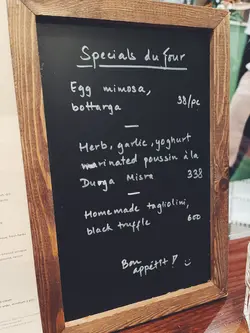 Specials du four
Egg mimosa,
bottarga 38/pc
Herb, garlic, yoghurt
marinated poussin à la
Durga Misra 338
Homemade tagliolini,
black truffle 600
Bon
appétit! ☺